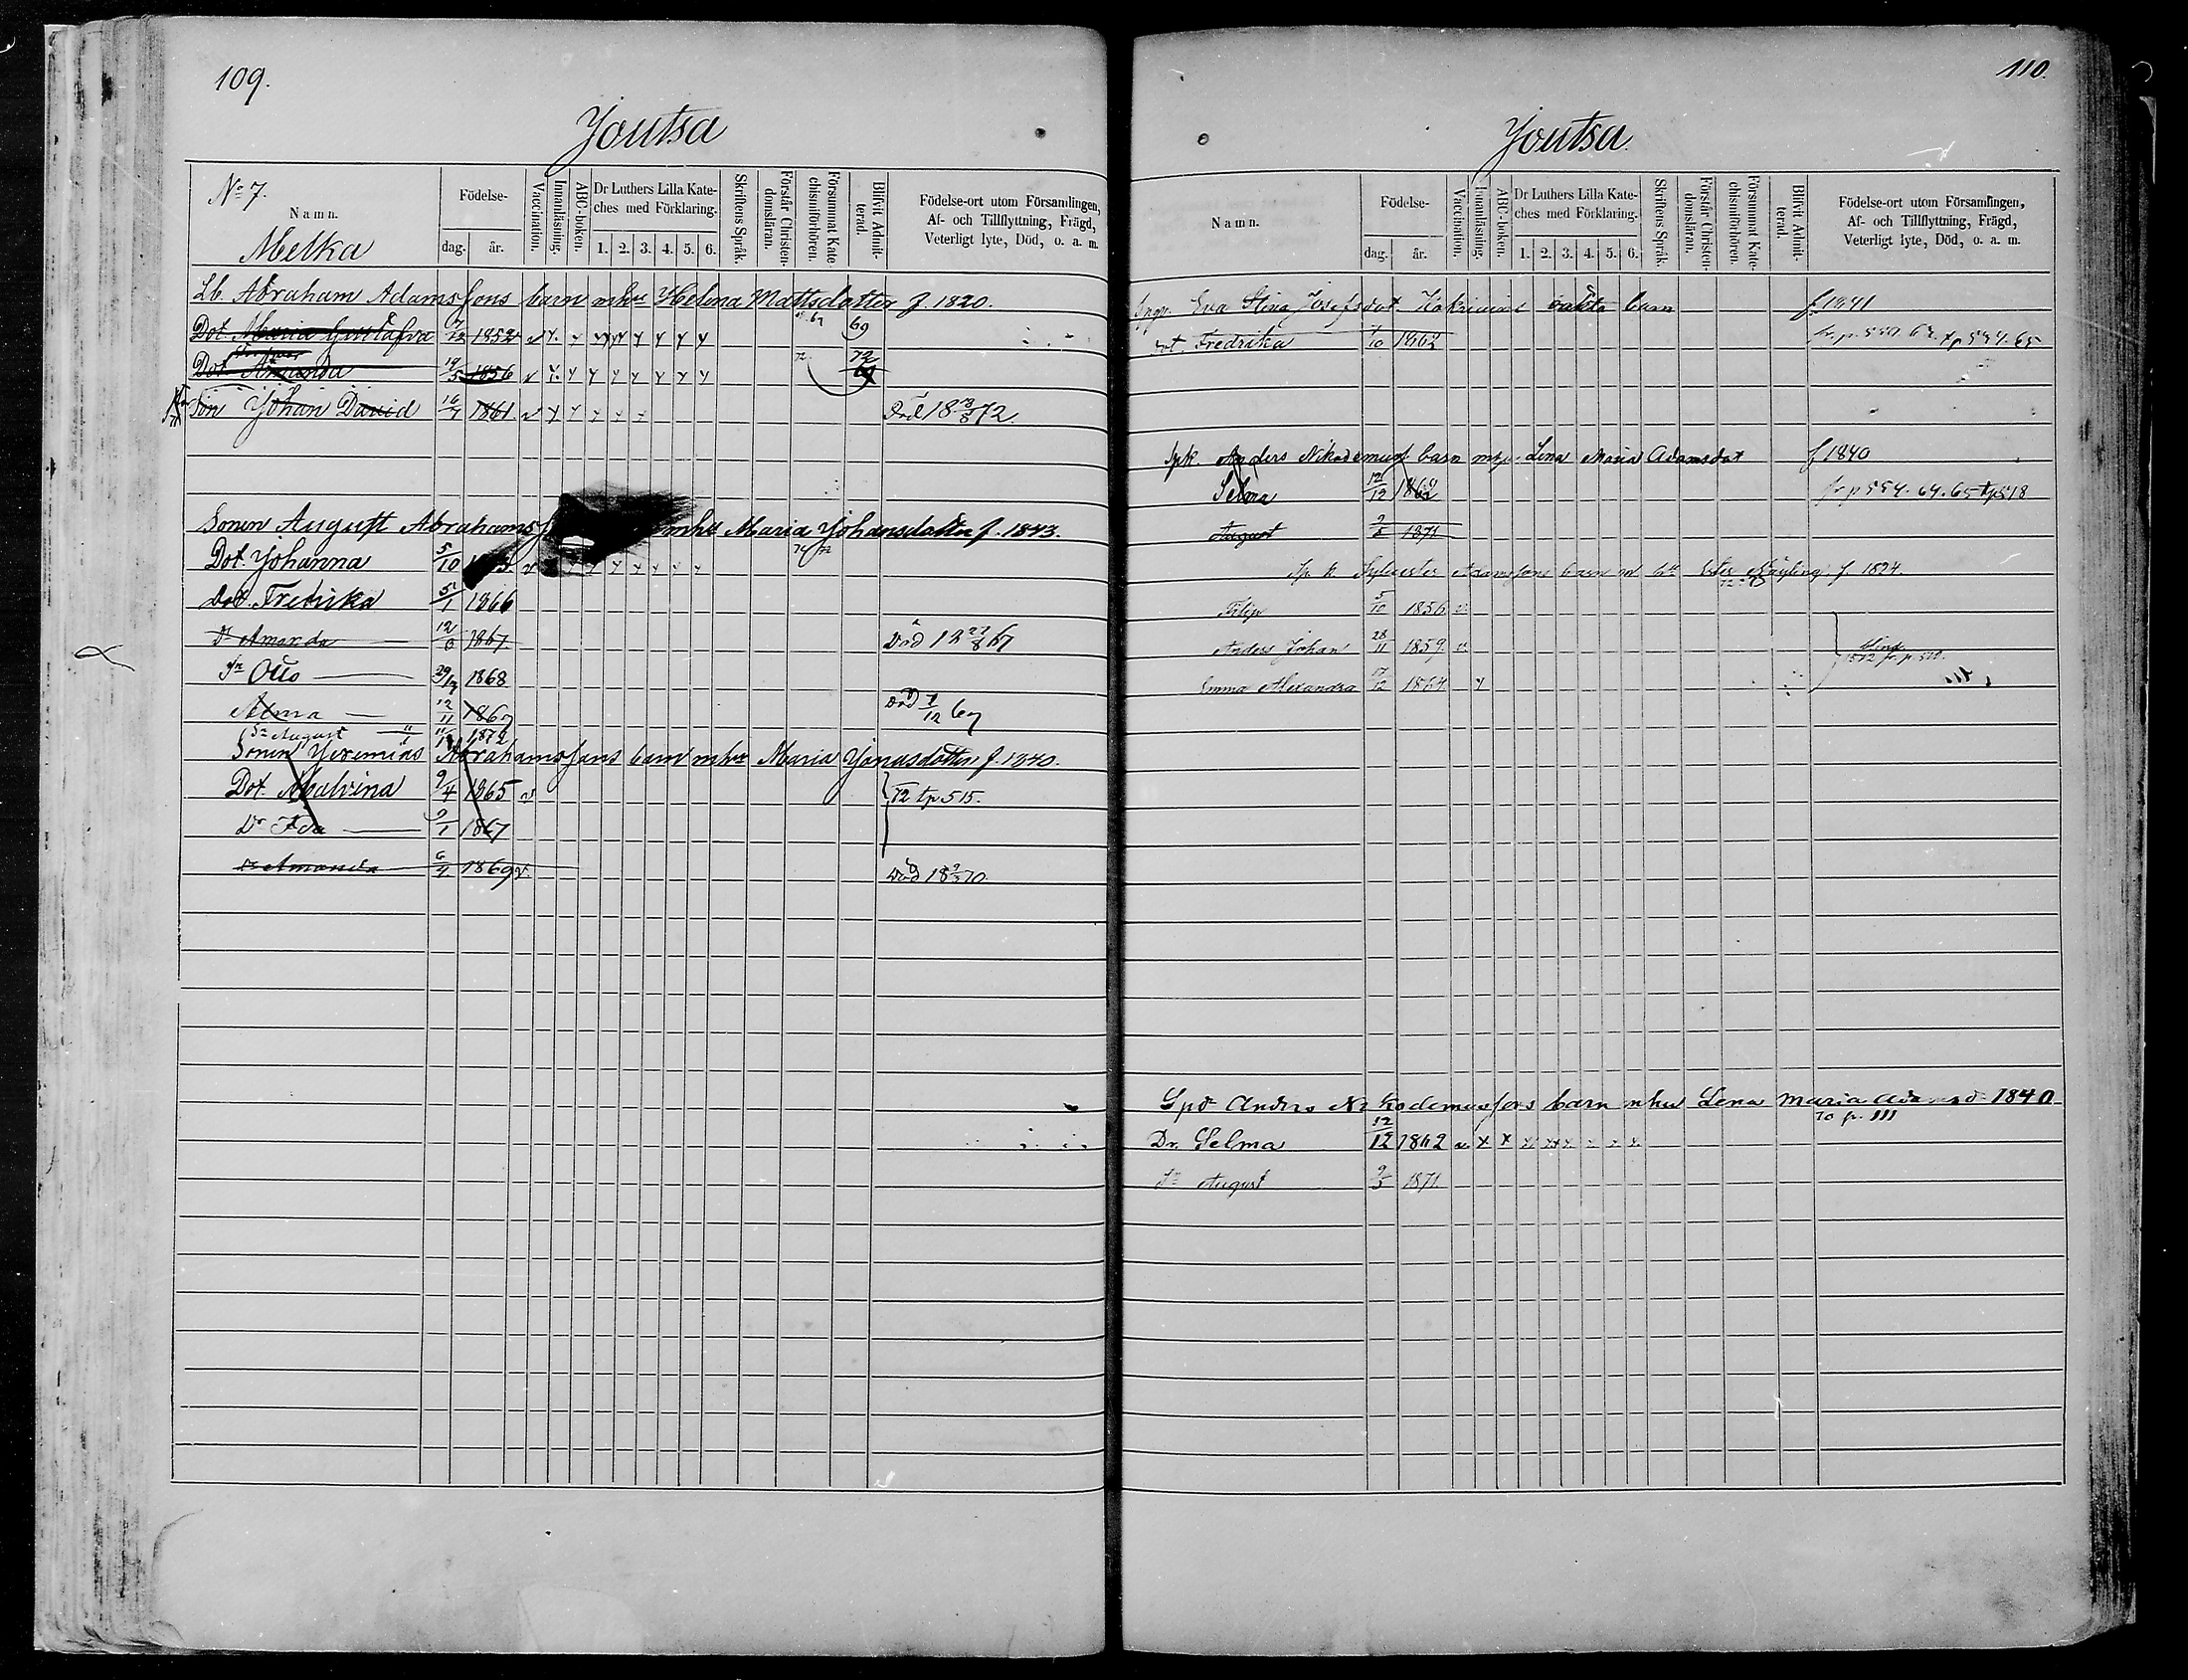 109.
Joutsa
No 7.
Namn.
Melka
Födelse-
dag. år.
Vaccination.
Innanläsning.
ABC-boken.
Dr Luthers Lilla Kate-
ches med Förklaring.
1. 2. 3. 4. 5. 6.
Skriftens Språk.
Förstår Christen-
domsläran.
Försummat Kate-
chismiförhören.
Blifvit Admit-
terad.
Födelse-ort utom Församlingen,
Af- och Tillflyttning, Frägd,
Veterligt lyte, Död, o. a. m.
Lb. Abraham Adamsfons barn mhu Helena Mattsdotter f. 1820.
Dot. Maria Gustafva 1852 69
Dot. Amanda 19/5 1856 72
Son Johan David 16/7 1861 Död 18 /8 72.
Sonen August Abrahamsf mhu Maria Johansdotter f. 1843.
Dot. Johanna 5/10
Dot. Fredrika 5/1 1866
Dr Amanda 1867 Död 18 27/8 67
Sn Otto 1868
Alma 12/11 1867 Död 7/12 67
Sn August 1872
Sonen Jeremias Abrahamsfons barn mhu Maria Jonasdotter f. 1840.
Dot. Malvina 9/4 1865 72 tp 515.
Dr Ida 9/1 1867
Dr Amanda 1869 Död 18 70
110.
Joutsa.
Namn.
Födelse-
dag. år.
Vaccination.
Innanläsning.
ABC-boken.
Dr Luthers Lilla Kate-
ches med Förklaring.
1. 2. 3. 4. 5. 6.
Skriftens Språk.
Förstår Christen-
domsläran.
Försummat Kate-
chismiförhören.
Blifvit Admit-
terad.
Födelse-ort utom Församlingen,
Af- och Tillflyttning, Frägd,
Veterligt lyte, Död, o. a. m.
Eva Stina Josefsdot. oäkta barn f 1841
Dot. Fredrika /10 1862
Spk. Anders Nikodemusf barn mhu Lena Maria Adamsdot f 1840
Selma 12/12 1862 fr p 554. 64. 65 tp 518
August 9/5 1871
Sp. k. Sylvester Adamsfons barn m hu f. 1824.
Filip 5/10 1856
Anders Johan 28/11 1859
Emma Alexandra 17/12 1864
Anders Nikodemusfons barn mhu Lena Maria 1840
70 fr. 111
Dr. Selma 12/12 1862
Sn August 9/5 1871